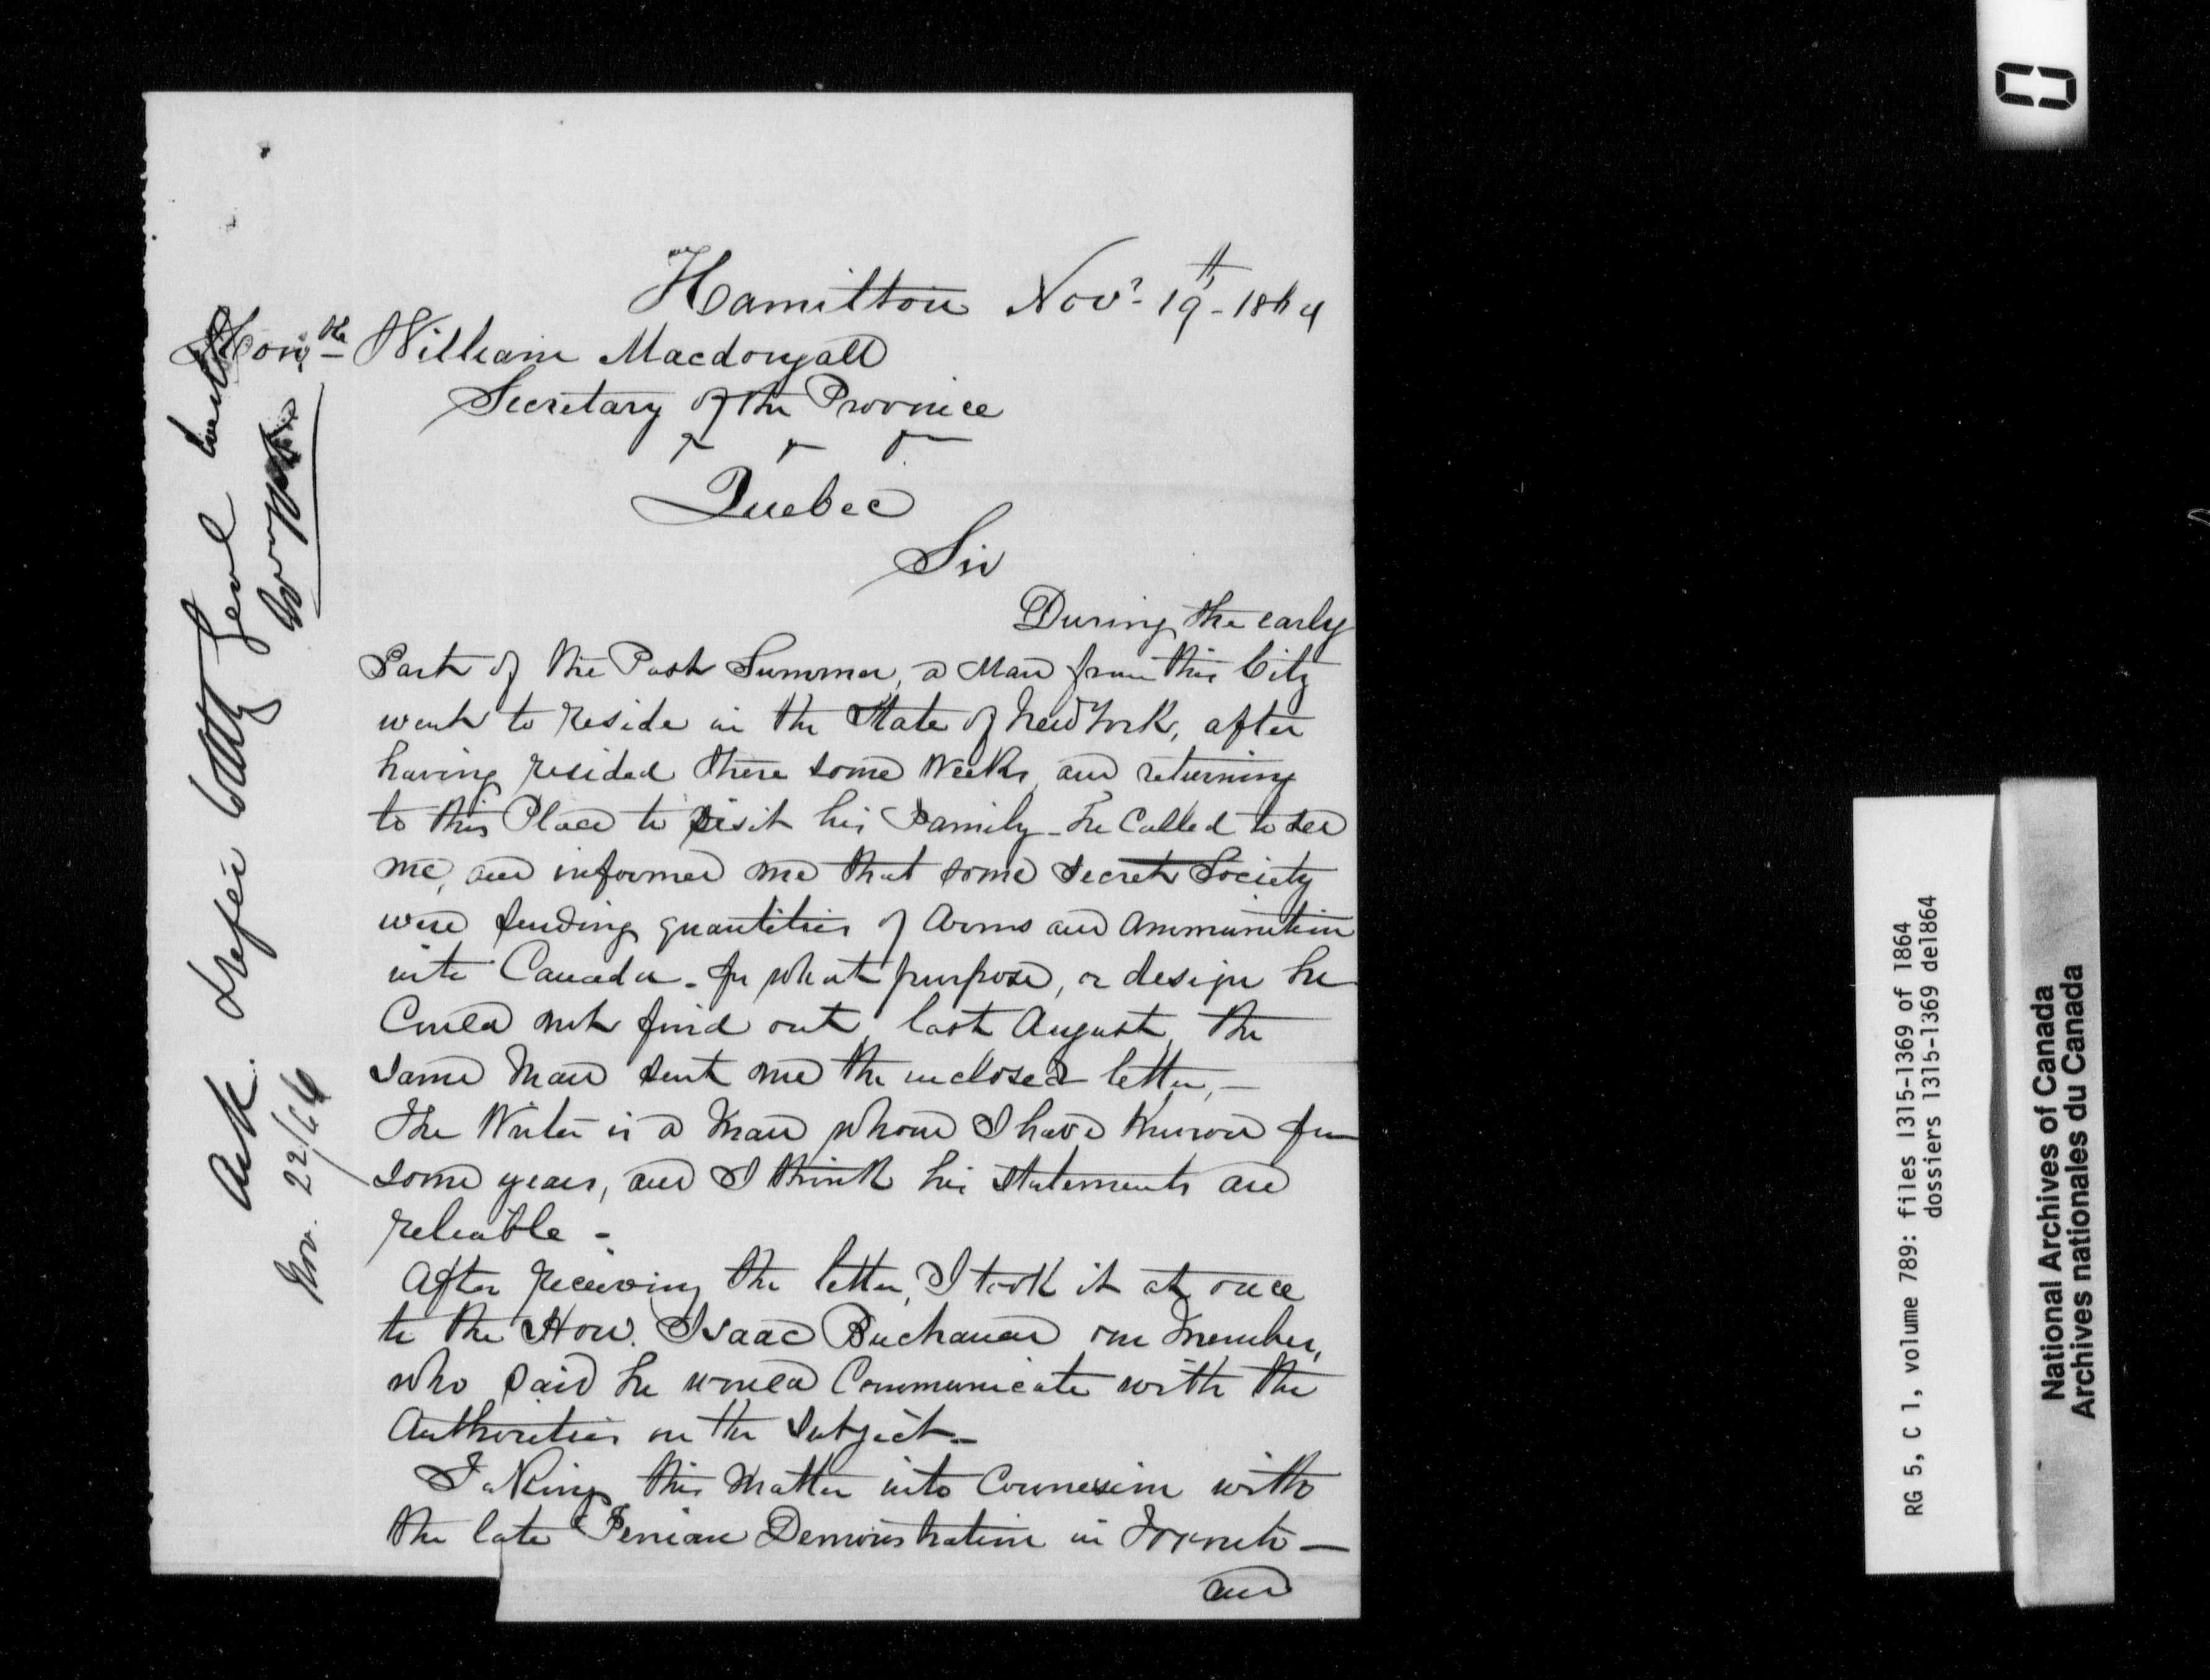 Hamilton Novr 19th 1864
Honble William Macdougall
Secretary of the Province
Quebec
Sir
During the early
Part of the Past Summer, a Man from this City
went to reside in the State of New York, after
having resided there some Weeks, and returning
to this Place to visit his Family - he Called to see
me, and informed me that some Secret Society
were sending quantities of Arms and Ammunition
into Canada - for what purpose, or design he
Could not find out, last August, the
same Man sent me the inclosed letter, -
The Writer is a Man whom I have Known for
some years, and I think his statements are
reliable -
After receiving the letter, I took it at once
to the Hon. Isaac Buchanan our Member,
who said he would Communicate with the
Authorities on the Subject -
Taking this Matter into Connexion with
the late Fenian Demonstration in Toronto -
and
Ack. & refer
Nov. 22/64
RG 5, C 1, volume 789: files 1315-1369 of 1864
dossiers 1315-1369 de1864
National Archives of Canada
Archives nationales du Canada